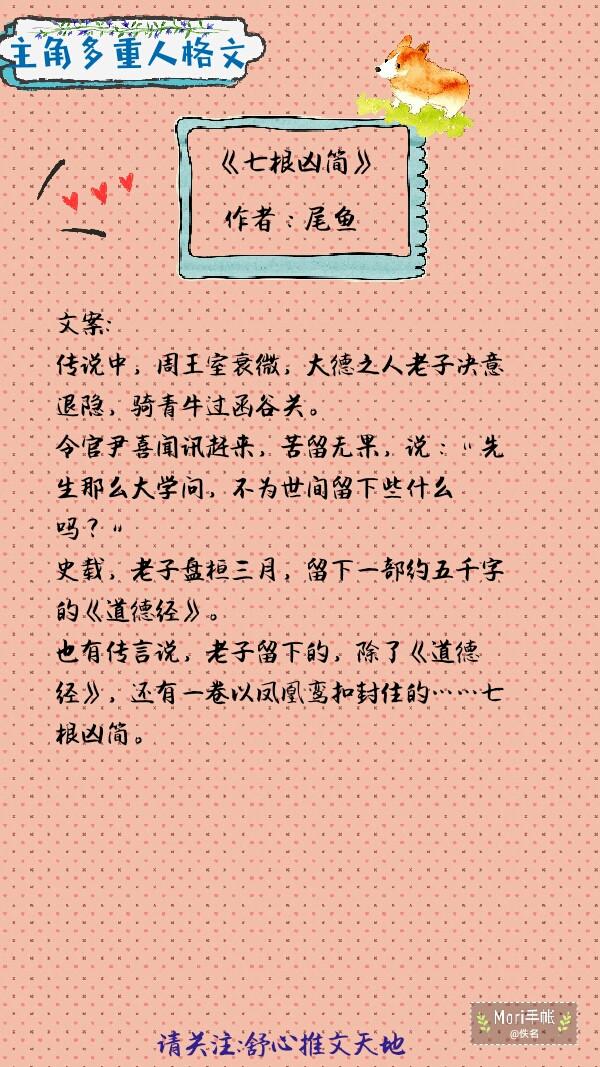 主角多重人格文
《七根凶简》
作者：尾鱼
文案:
传说中，周王室衰微，大德之人老子决意
退隐，骑青牛过函谷关。
令官尹喜闻讯赶来，苦留无果，说："先
生那么大学问，不为世间留下些什么
吗？"
史载，老子盘桓三月，留下一部约五千字
的《道德经》。
也有传言说，老子留下的，除了《道德
经》，还有一卷以凤凰鸾扣封住的……七
根凶简。
Mori手帐
@佚名
请关注:舒心推文天地